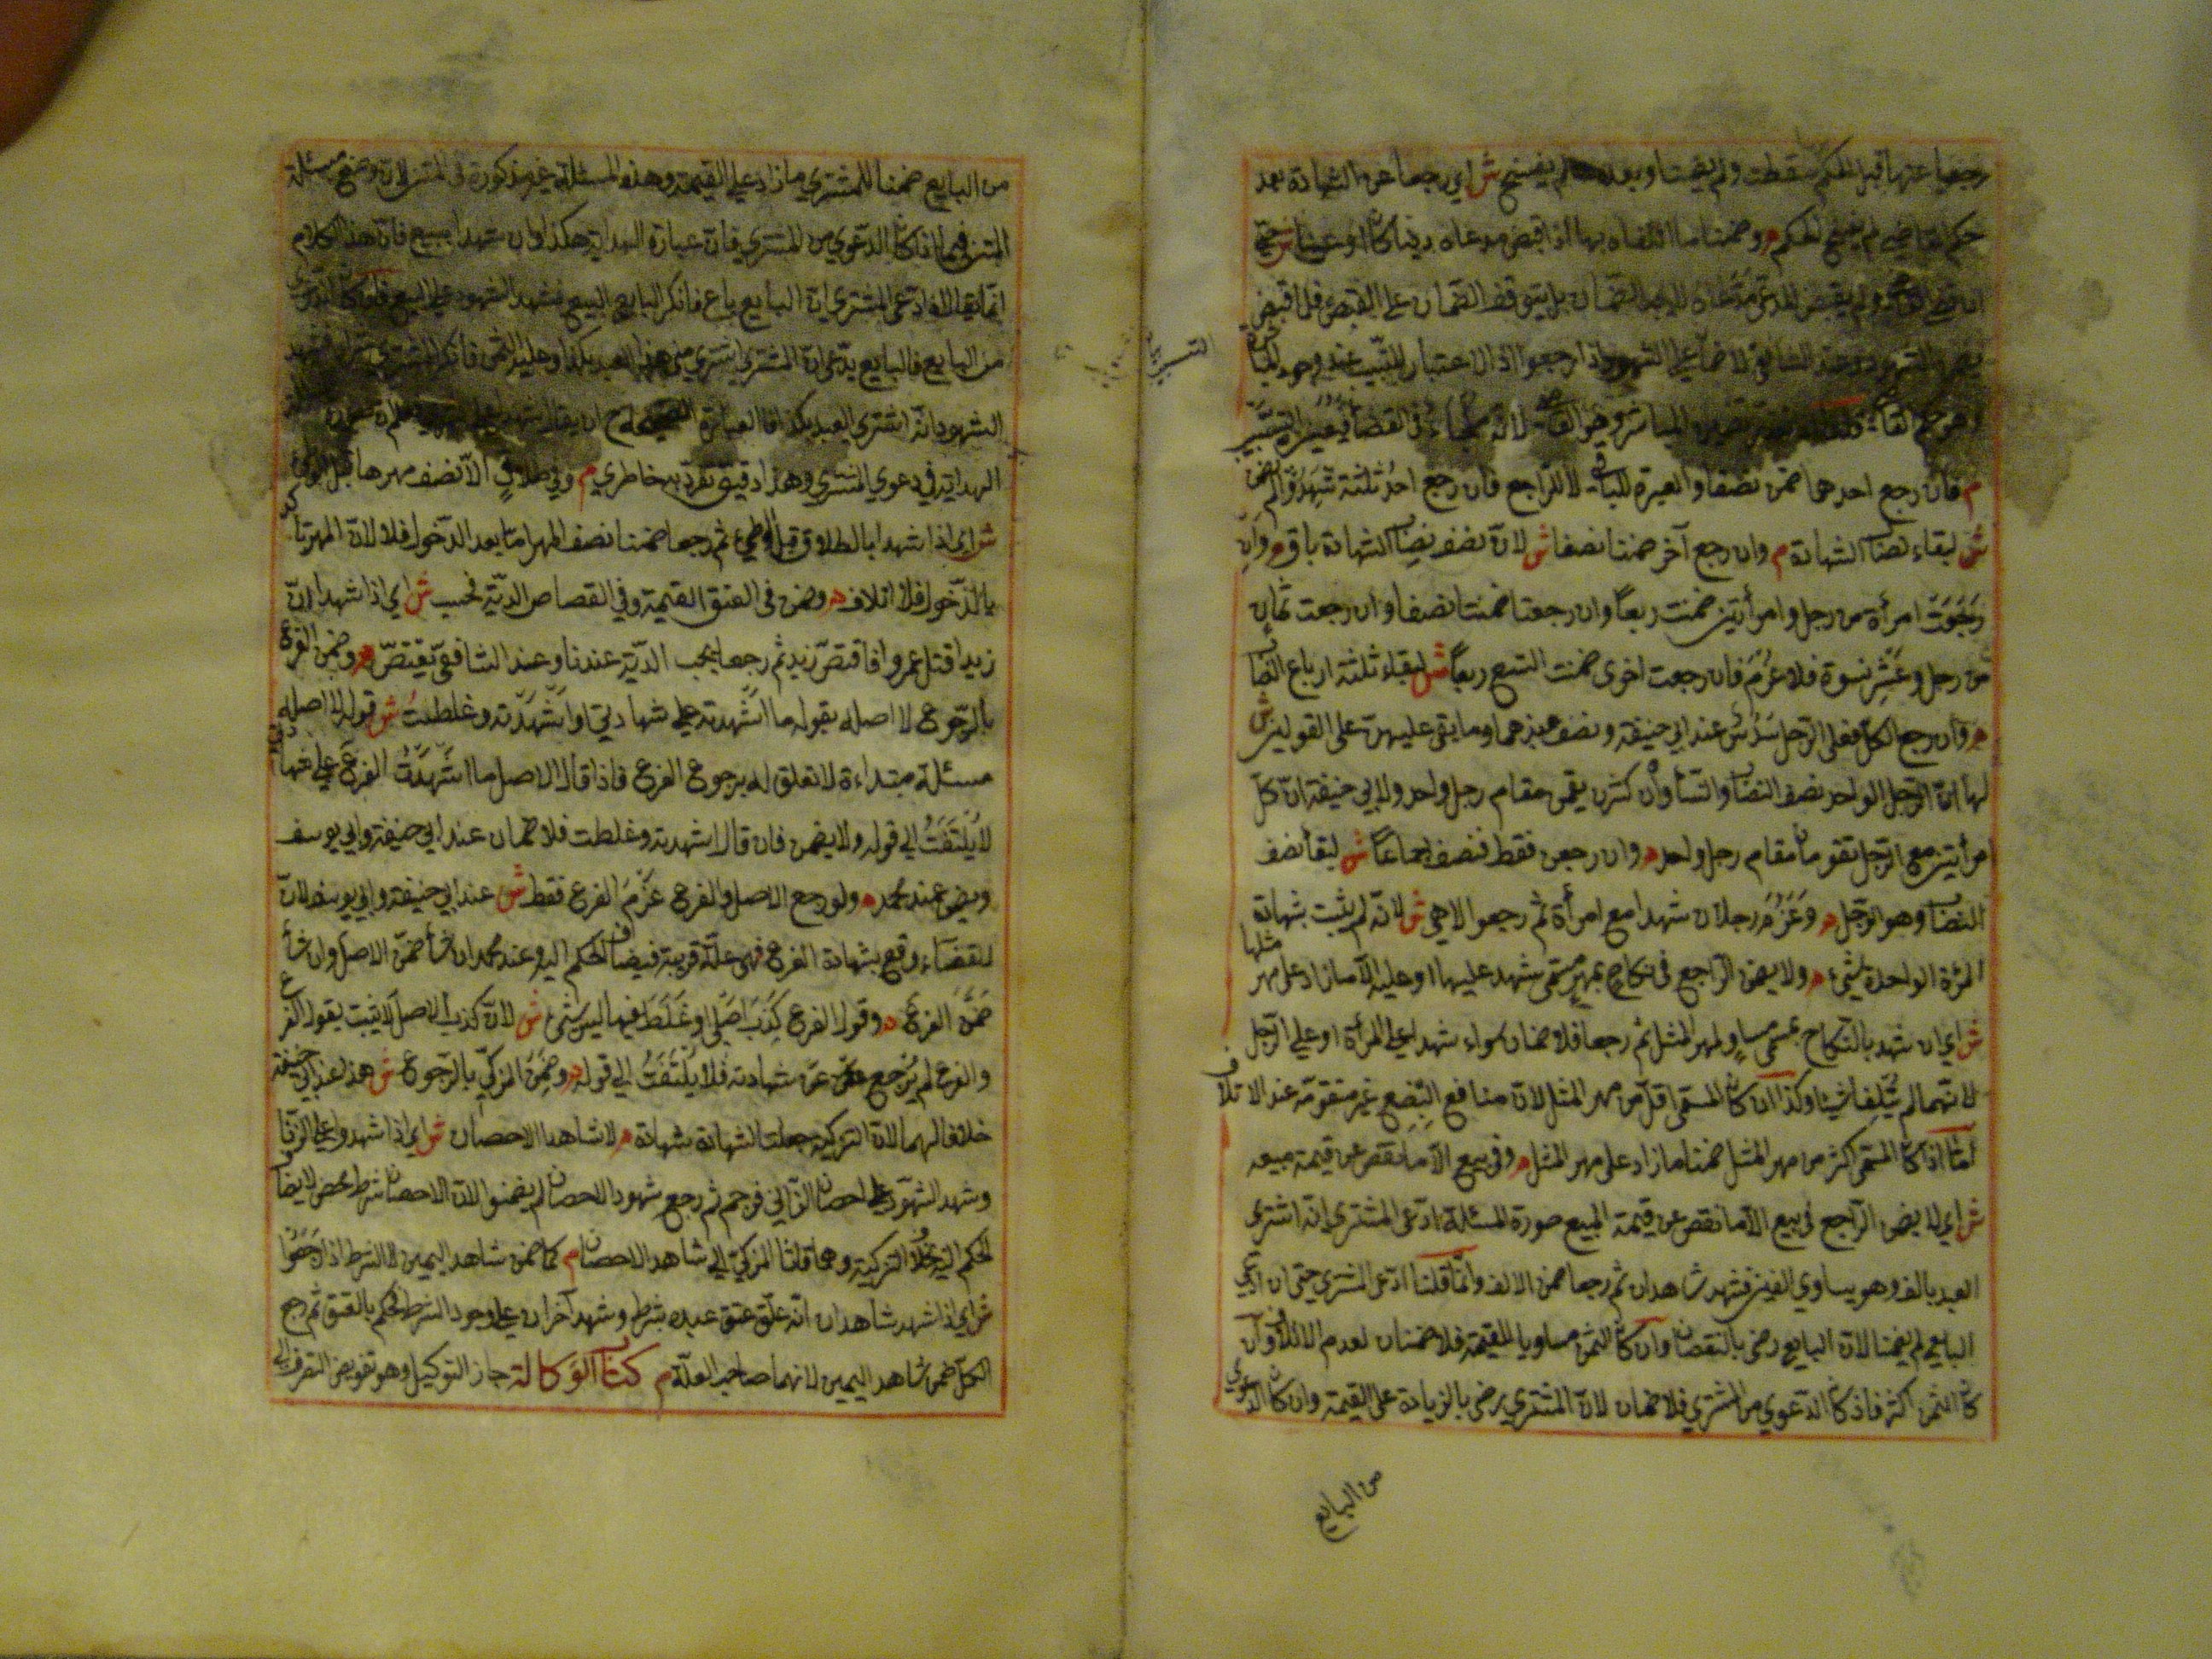 رجعا عنها قبل الحكم سقطت ولم يضمنا وبعده لم يفسخ ش اي رجعا عن الشهادة بعد
حكم القاضي لم يفسخ الحكم م وضمنا ما اتلفاه بها اذا قبض مدعاه دينا كان او عينا ش حتى
ان قضى ولم يقبض المدعي مدعاه لا يجب الضمان بل يتوقف الضمان على القبض فلما قبض
وعند الشافعي لا ضمان على الشهود اذا رجعوا اذ لا اعتبار للتسبيب عند وجود المباشرة
لانه في القضاء فيعتبر التسبيب
م فان رجع احدهما ضمن نصفا والعبرة للباقي لا للراجع فان رجع احد ثلثة شهدوا لم يضمن
ش لبقاء نصاب الشهادة م وان رجع آخر ضمنا نصفا ش لان نصف نصاب الشهادة باق م وان
رجعت امرأة من رجل وامرأتين ضمنت ربعا وان رجعتا ضمنتا نصفا وان رجعت ثمان
من رجل وعشر نسوة فلا غرم فان رجعت اخرى ضمنت التسع ربعا ش لبقاء ثلثة ارباع النصاب
م وان رجع الكل فعلى الرجل سدس عند ابي حنيفة ونصف عندهما وما بقي عليهن على القولين ش
لهما ان الرجل الواحد نصف النصاب والنساء وان كثرن يقمن مقام رجل واحد ولابي حنيفة ان كل
امرأتين مع الرجل تقومان مقام رجل واحد م وان رجعن فقط فنصف اجماعا ش لبقاء نصف
النصاب وهو الرجل م وغرم رجلان شهدا مع امرأة ثم رجعوا لا هي ش لانه لم يثبت بشهادة
المرأة الواحدة شيء م ولا يضمن الراجع في نكاح بمهر مسمى شهد عليها او عليه الا ما زاد على مهر مثلها
ش اي ان شهد بالنكاح بمسمى مساو لمهر المثل ثم رجعا فلا ضمان سواء شهدا على المرأة او على الرجل
لانهما لم يتلفا شيئا وكذا ان كان المسمى اقل من مهر المثل لان منافع البضع غير متقومة عند الاتلاف
اما اذا كان المسمى اكثر من مهر المثل ضمنا ما زاد على مهر المثل م وفي بيع الا ما نقص عن قيمة مبيعه
ش اي لا يضمن الراجع في بيع الا ما نقص عن قيمة المبيع صورة المسئلة ادعى المشتري انه اشترى
العبد بالف وهو يساوي الفين فشهد شاهدان ثم رجعا ضمن الالف وانما قلنا ادعى المشتري حتى ان ادعى
البايع لم يضمنا لان البايع رضي بالنقصان وان كان الثمن مساويا للقيمة فلا ضمان لعدم الاتلاف وان
كان الثمن اكثر فاذ كان الدعوي من المشتري فلا ضمان لان المشتري رضي بالزيادة على القيمة وان كان الدعوي
من البايع
من البايع ضمنا للمشتري ما زاد على القيمة وهذه المسئلة غير مذكورة في المتن لان وضع مسئلة
المتن فيما اذا كان الدعوي من المشتري فان عبارة الهداية هكذا وان شهدا ببيع فان هذا الكلام
انما يقال اذا ادعى المشتري ان البايع باع فانكر البايع البيع فشهد الشهود على البيع فاما كان الدعوي
من البايع فالبايع يدعي ان المشتري اشترى مني هذا العبد بكذا وعليه الثمن فانكر المشتري شراه فشهد
الشهود انه اشترى العبد بكذا فالعبارة الصحيحة ان يقال
الهداية في دعوي المشتري وهذا دقيق تفرد به خاطري م وفي طلاق الا نصف مهرها قبل الوطئ
ش اي اذا شهدا بالطلاق قبل الوطئ ثم رجعا ضمنا نصف المهر اما بعد الدخول فلا لان المهر تأكد
بالدخول فلا اتلاف م وضمن في العتق القيمة وفي القصاص الدية فحسب ش اي اذا شهدا ان
زيدا قتل عمروا فاقتص زيد ثم رجعا يجب الدية عندنا وعند الشافعي يقتص م وضمن الفرع
بالرجوع لا اصله بقوله ما اشهدته على شهادتي او اشهدته وغلطت ش قوله لا اصله
مسئلة مبتداءة لا تعلق له برجوع الفرع فاذا قال الاصل ما اشهدت الفرع على شهادتي
لا يلتفت الى قوله ولا يضمن فان قال اشهدته وغلطت فلا ضمان عند ابي حنيفة وابي يوسف
ويضمن عند محمد م ولو رجع الاصل والفرع غرم الفرع فقط ش عند ابي حنيفة وابي يوسف لان
القضاء وقع بشهادة الفرع فهي علة قريبة فيضاف الحكم اليه وعند محمد ان شاء ضمن الاصل وان شاء
ضمن الفرع م وقول الفرع كذب اصلي او غلط فيها ليس بشيء ش لان كذب الاصل لا يثبت بقول الفرع
والفرع لم يرجع عن شهادته فلا يلتفت الى قوله م وضمن المزكي بالرجوع ش هذا عند ابي حنيفة
خلافا لهما لان التزكية جعلت الشهادة شهادة م لا شاهد الاحصان ش اي اذا شهدوا على الزنا
وشهد الشهود على احصان الزاني فرجم ثم رجع شهود الاحصان لم يضمنوا لان الاحصان شرط محض لا يضاف
الحكم اليه بخلاف التزكية وهما قاسا المزكي الى شاهد الاحصان م كما ضمن شاهد اليمين لا الشرط اذا رجعوا
ش اي اذا شهد شاهدان انه علق عتق عبده بشرط وشهد آخران على وجود الشرط فحكم بالعتق ثم رجع
الكل ضمن شاهد اليمين لانهما صاحبا العلة م كتاب الوكالة جاز التوكيل وهو تفويض التصرف الى